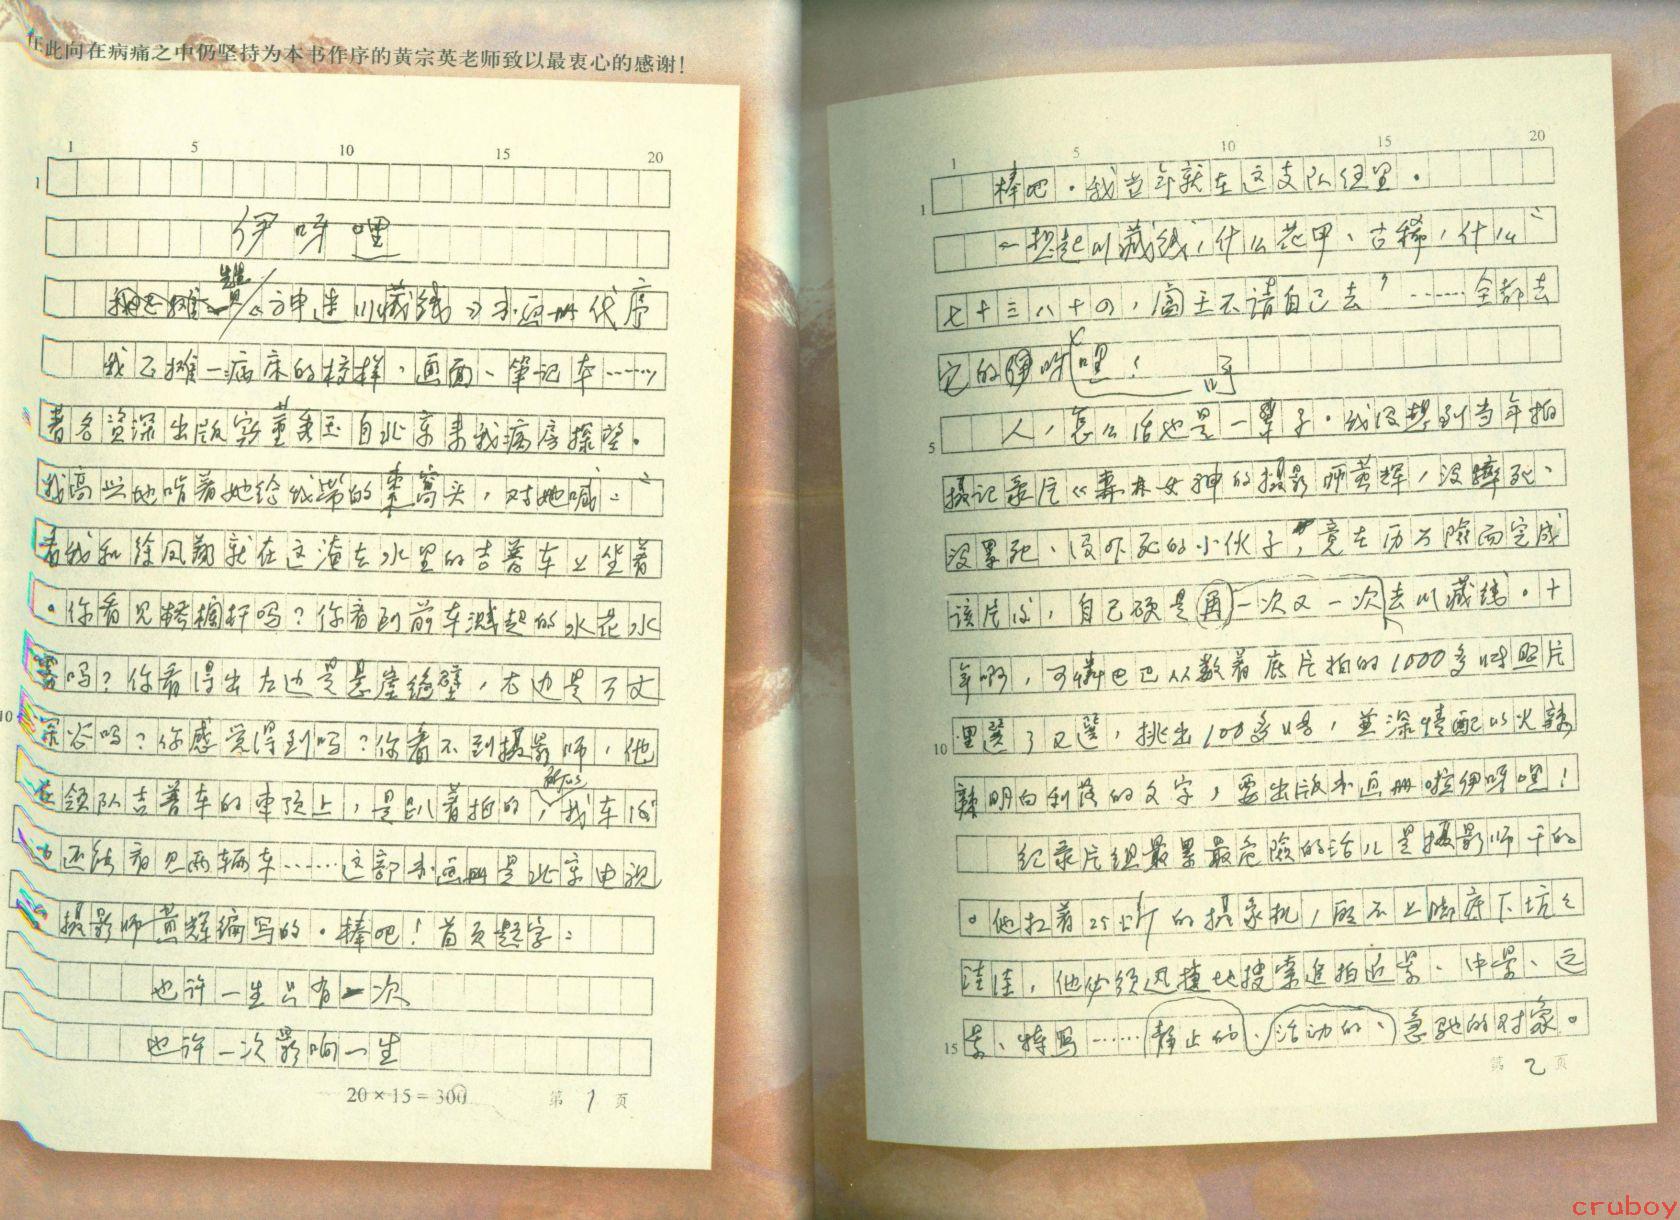 在此向在病痛之中仍坚持为本书作序的黄宗英老师致以最衷心的感谢！
1 5 10 15 20
1
伊呀嘿
《神走川藏线》书画册代序
我正摊一病床的校样、画面、笔记本……
著名资深出版家董秀玉自北京来我病房探望。
我高兴地啃着她给我带的枣窝头，对她喊：“
看我和徐凤翔就在这淹在水里的吉普车上坐着
。你看见桥栏杆吗？你看到前车溅起的水花水
雾吗？你看得出左边是悬崖绝壁，右边是万丈
10
深谷吗？你感觉得到吗？你看不到摄影师，他
在领队吉普车的车顶上，是趴着拍的，所以我车
还能看见两辆车……这部书画册是北京电视
摄影师黄辉编写的。棒吧！首页题字：
也许一生只有一次
也许一次影响一生
20×15=300 第1页
1 5 10 15 20
1
棒吧。我当年就在这支队伍里。
一想起川藏线，什么花甲、古稀，什么“
七十三八十四，阎王不请自己去”……全都去
它的伊呀嘿！
5
人，怎么活也是一辈子。我没想到当年拍
摄记录片《森林女神》的摄影师黄辉，没摔死、
没累死、没吓死的小伙子，竟在历万险而完成
该片后，自己硬是再一次又一次去川藏线。十
年啊，可怜巴巴从数着底片拍的1000多张照片
10
里选了又选，挑出100多张，并深情配以火辣
辣明白利落的文字，要出版书画册啦伊呀嘿！
纪录片组最累最危险的活儿是摄影师干的
。他扛着25公斤的摄象机，顾不上脚底下坑坑
洼洼，他必须迅捷地搜索追拍近景、中景、远
15
景、特写……静止的、活动的、急驰的对象。
第2页
cruboy